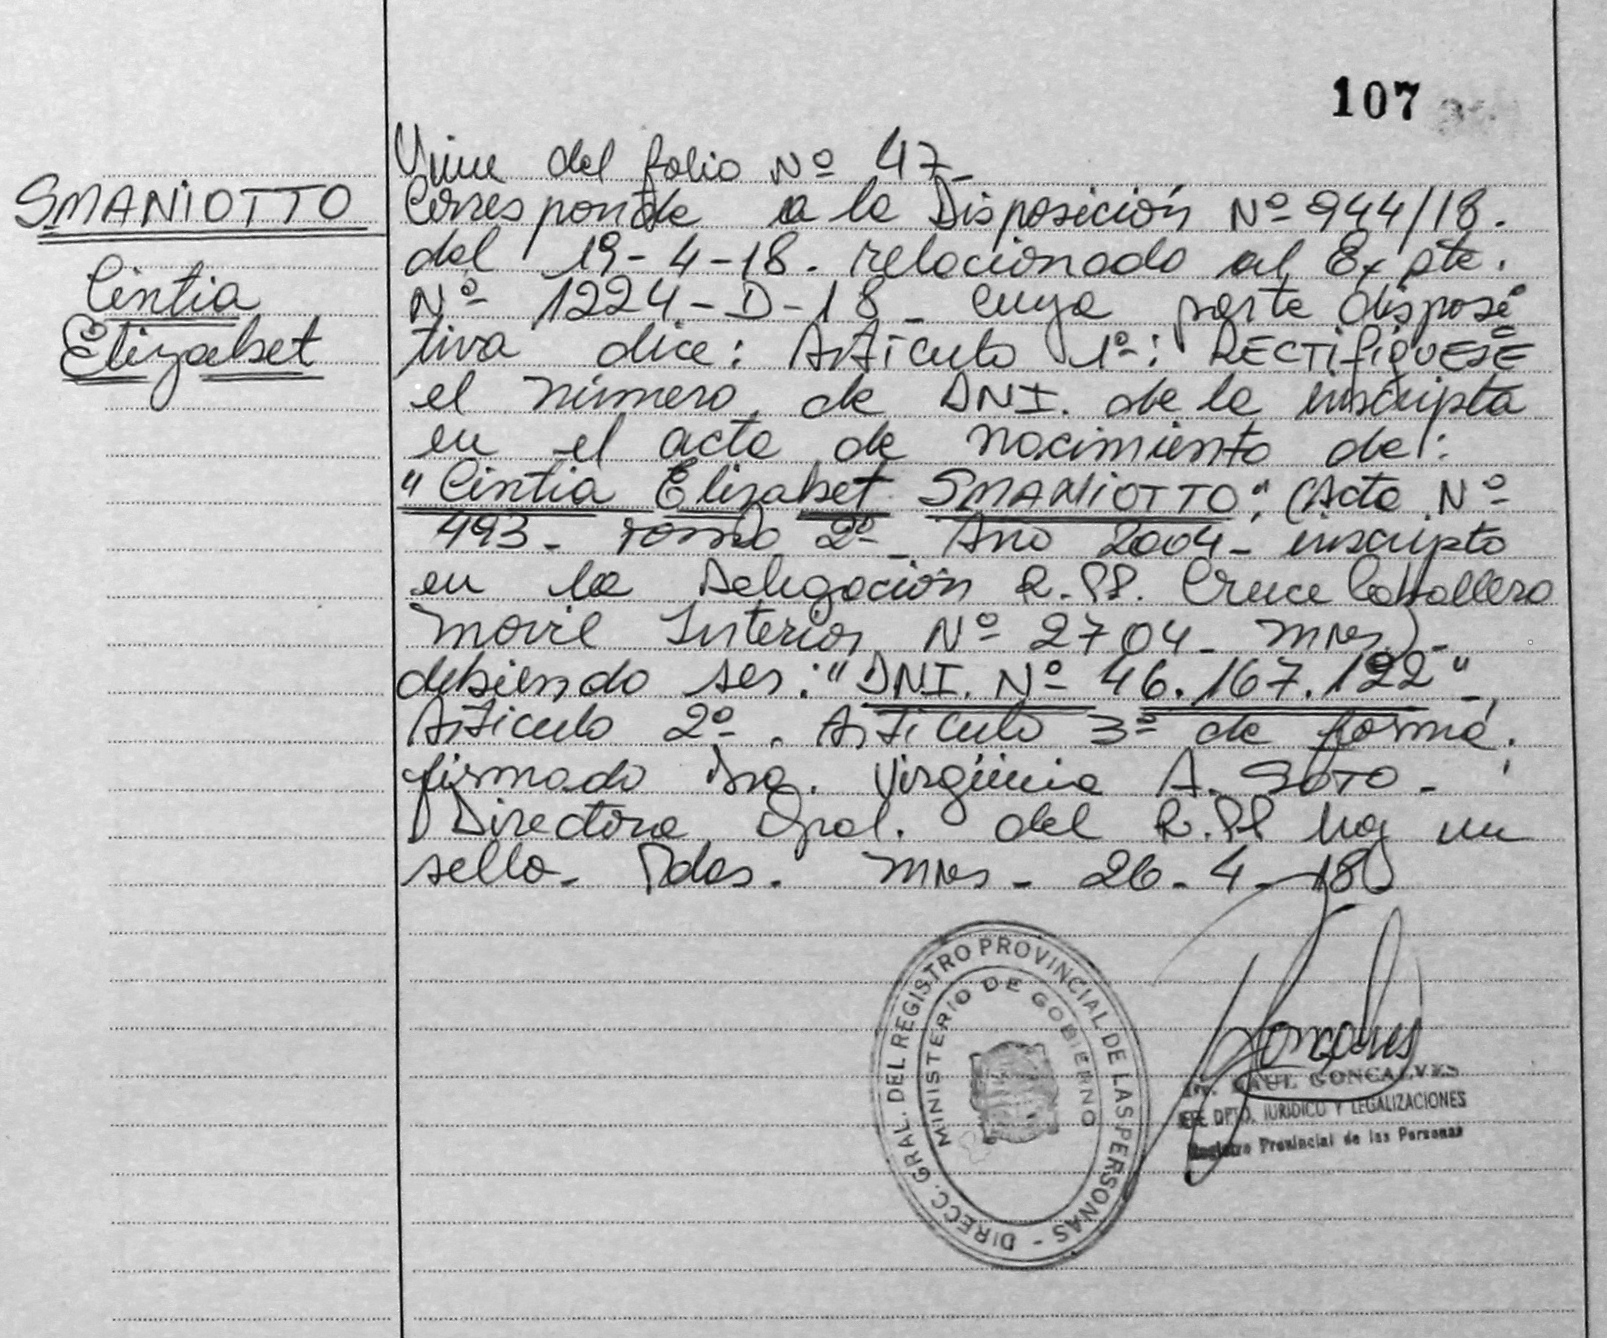 107
SMANIOTTO
Cintia
Elizabet
Viene del folio Nº 47-
Corresponde a la Disposición Nº 944/18.
del 19-4-18. relacionado al Expte.
Nº 1224-D-18- cuya parte disposi
tiva dice: Artículo 1º: RECTIFIQUESE
el número de DNI. de la inscripta
en el acta de nacimiento de:
"Cintia Elizabet SMANIOTTO" (Acta Nº
493- Tomo 2º- Año 2004- inscripto
en la Delegación R.PP. Cruce Caballero
Movil Interior Nº 2704- Mnes)-
debiendo ser: "DNI. Nº 46.167.122"-
Artículo 2º. Artículo 3º de forma.
firmado Dra. Virginia A. SOTO-
Directora Gral. del R.PP hay un
sello- Pdas. Mnes- 26-4-18
DIRECC. GRAL. DEL REGISTRO PROVINCIAL DE LAS PERSONAS -
MINISTERIO DE GOBIERNO
RAUL GONCALVES
DPTO. JURIDICO Y LEGALIZACIONES
Registro Provincial de las Personas